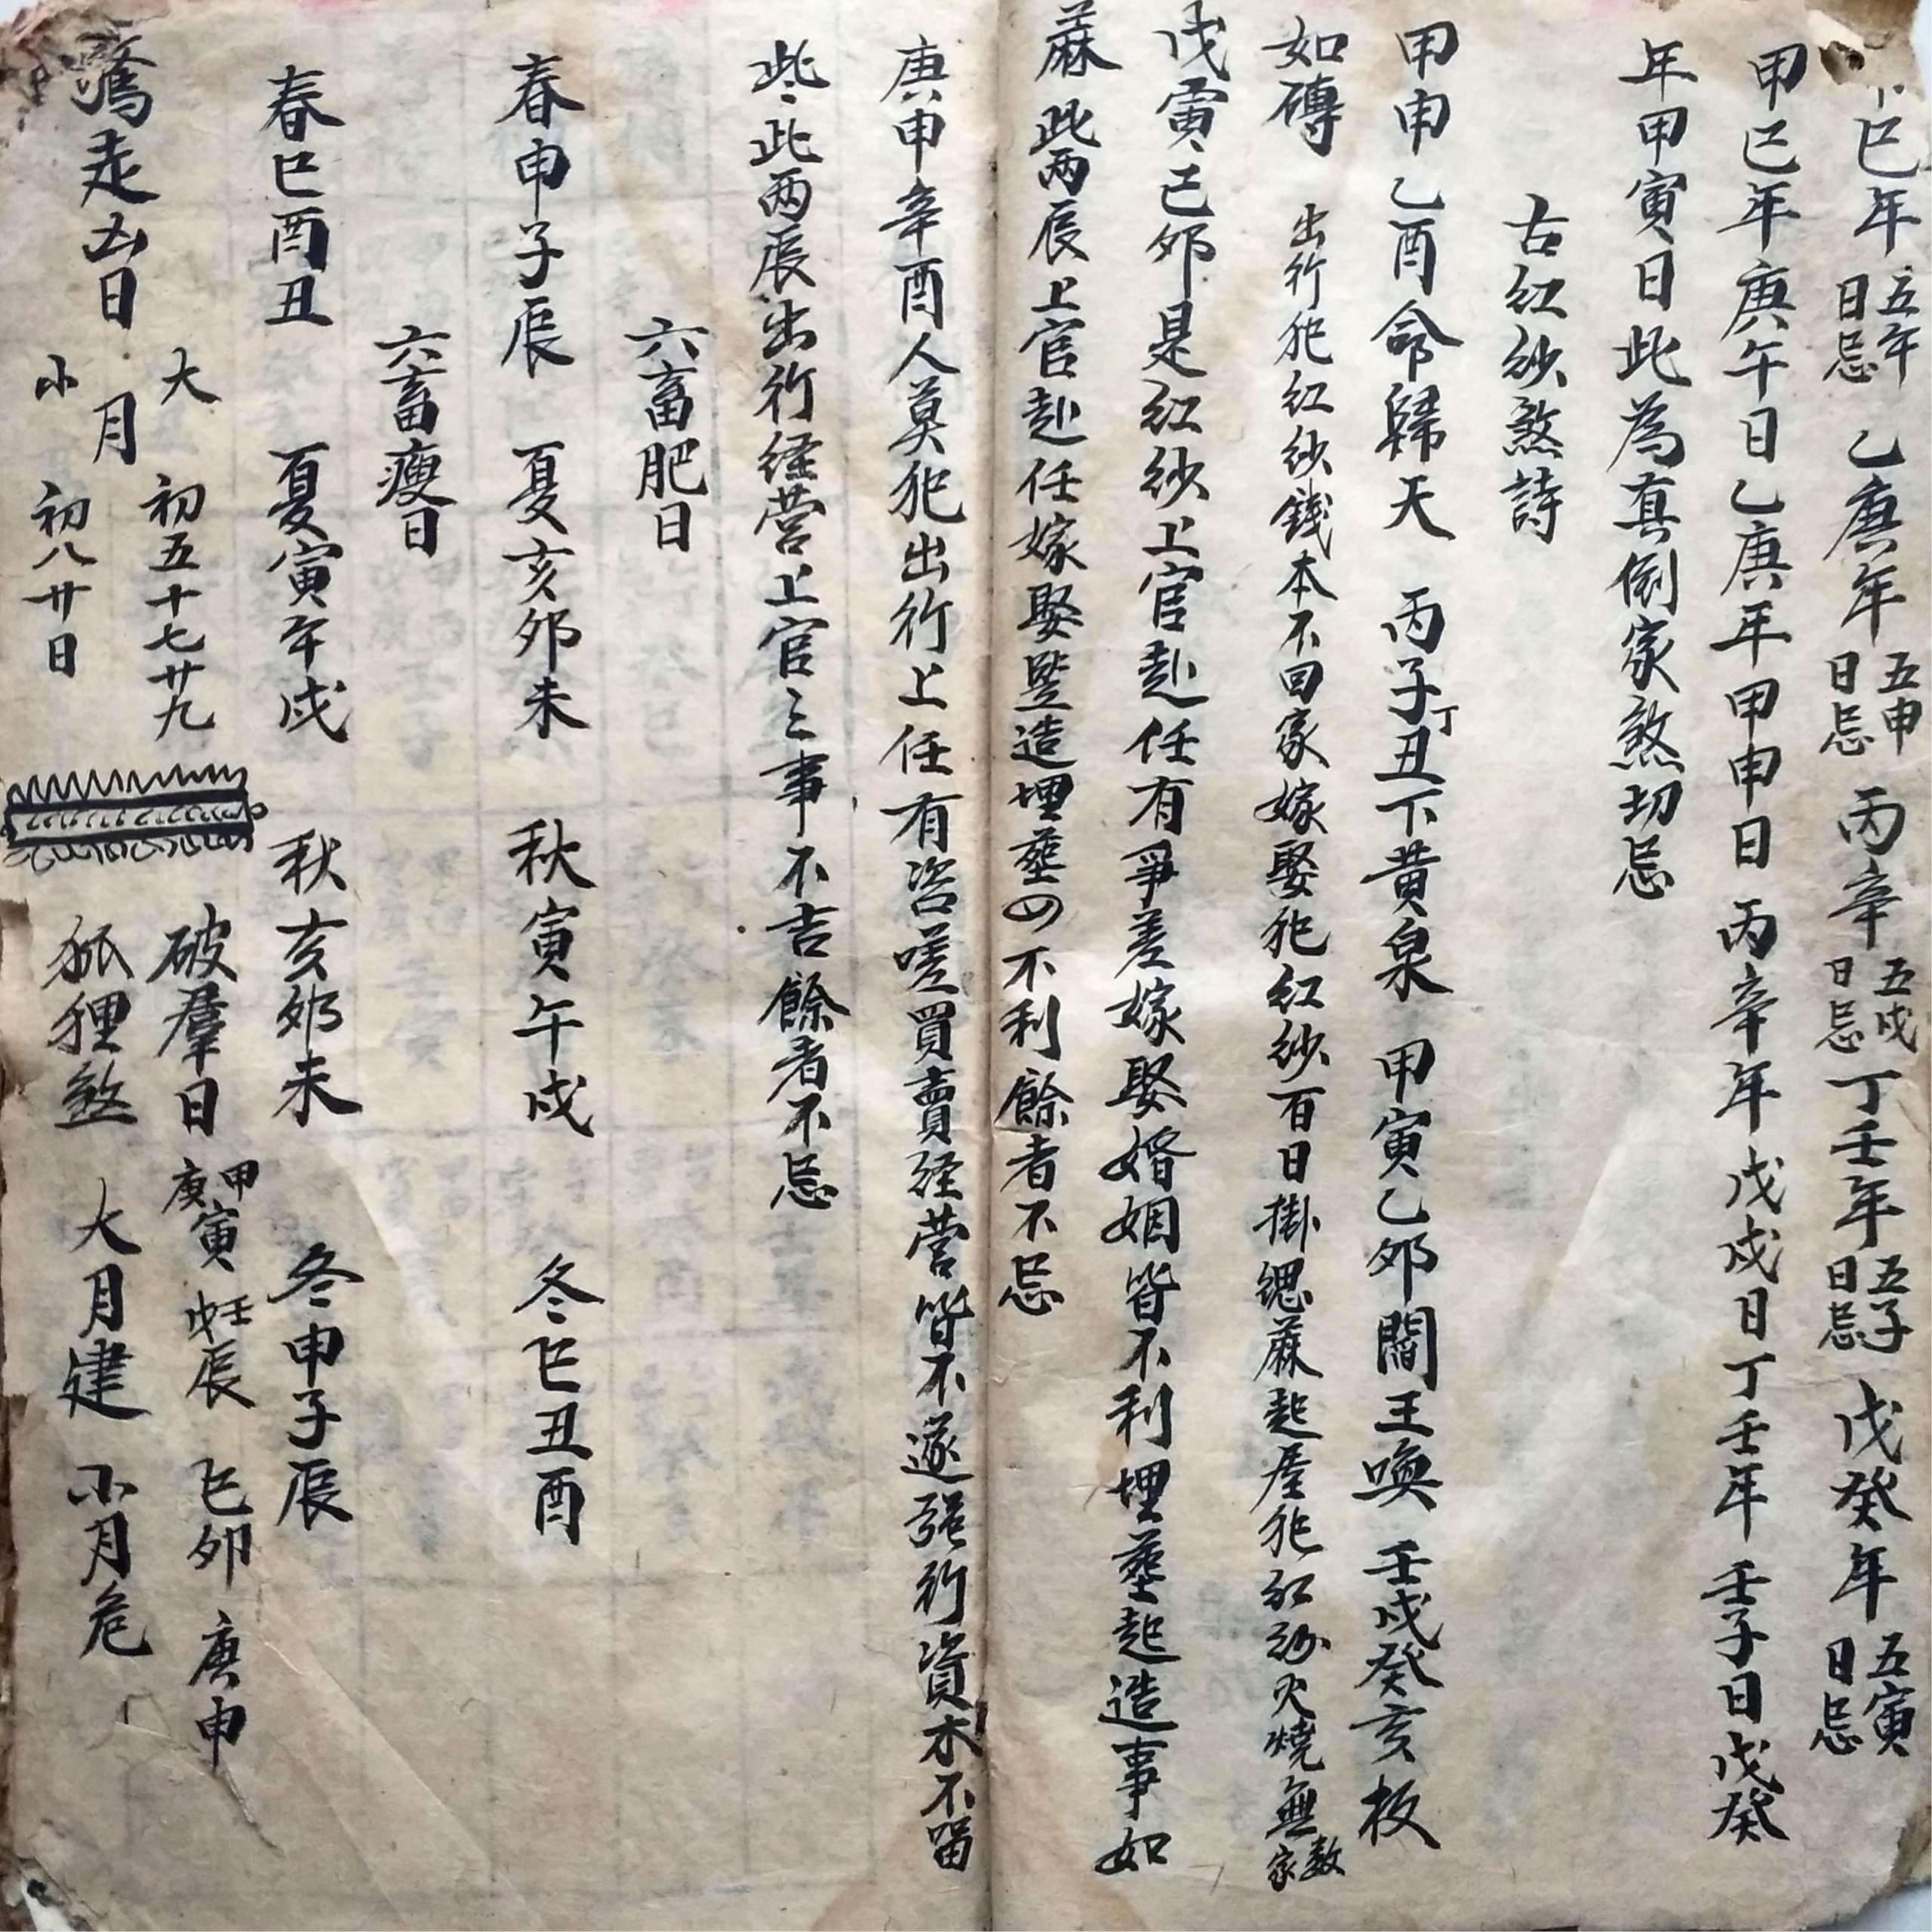 巳年五年日忌 乙庚年五申日忌 丙辛五戌日忌 丁壬年五子日忌 戊癸年五寅日忌
甲巳年庚午日乙庚年甲申日丙辛年戊戌日丁壬年壬子日戊癸
年甲寅日此為真倒家煞切忌
古紅紗煞詩
甲申乙酉命歸天 丙子丁丑下黄泉 甲寅乙夘閻王喚 壬戌癸亥板
如磚 出行犯紅紗錢本不回家嫁娶犯紅紗百日掛緦蔴起屋犯紅紗火燒無數家
戊寅己夘是紅紗上官赴任有爭差嫁娶婚姻皆不利埋塟起造事如
蔴 此两辰上官赴任嫁娶竪造埋塟四不利餘者不忌
庚申辛酉人莫犯出行上任有咨嗟買賣経营皆不遂强行資本不留
些 此两辰出行経营上官三事不吉餘者不忌
六畜肥日
春申子辰 夏亥夘未 秋寅午戌 冬巳丑酉
六畜瘦日
春巳酉丑 夏寅午戌 秋亥夘未 冬申子辰
大月初五十七廿九 破羣日 甲庚寅 壬戊辰 己卯 庚申
走凶日 小月初八廿日 狐狸煞 大月建 小月危